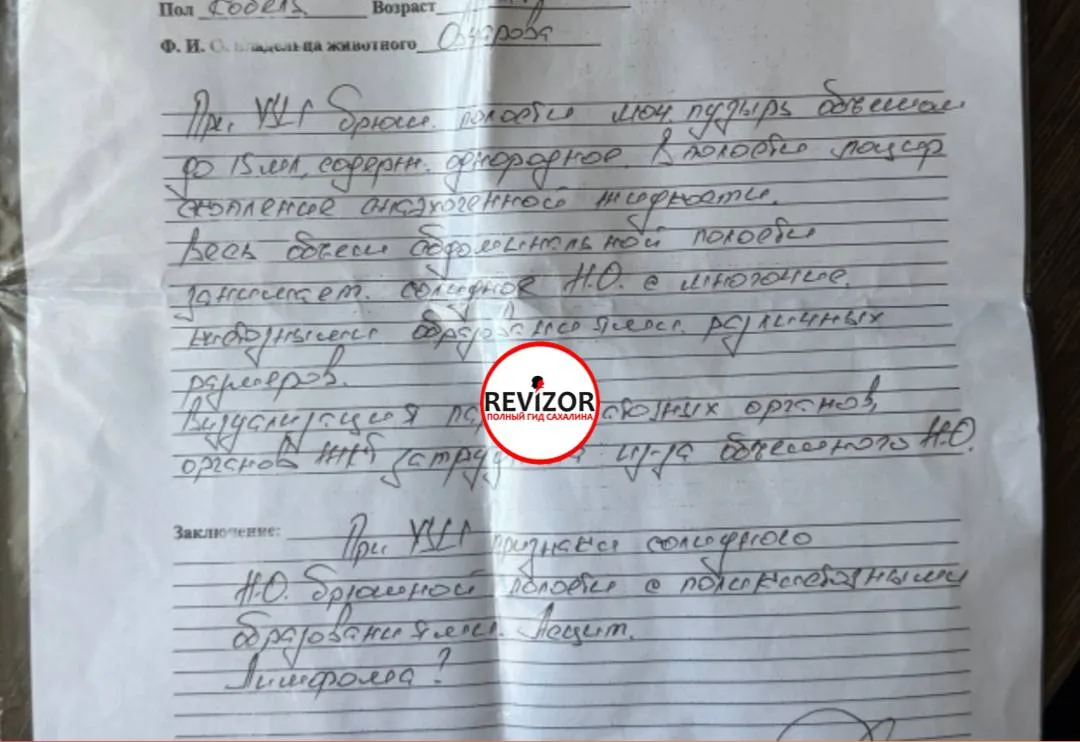 Пол кобель Возраст
Ф. И. О. владельца животного
При УЗИ брюш. полости моч. пузырь объемом
до 15 мл, содерж. однородное. В полости
скопление анэхогенной жидкости.
Весь объем абдоминальной полости
занимает солидное Н.О. с множествен.
кистозными образованиями различных
размеров.
Визуализация органов,
органов ЖКТ из-за объемного Н.О.
REVIZOR
ПОЛНЫЙ ГИД САХАЛИНА
Заключение: При УЗИ признаки солидного
Н.О. брюшной полости с поликистозными
образованиями. Асцит.
Лимфома?